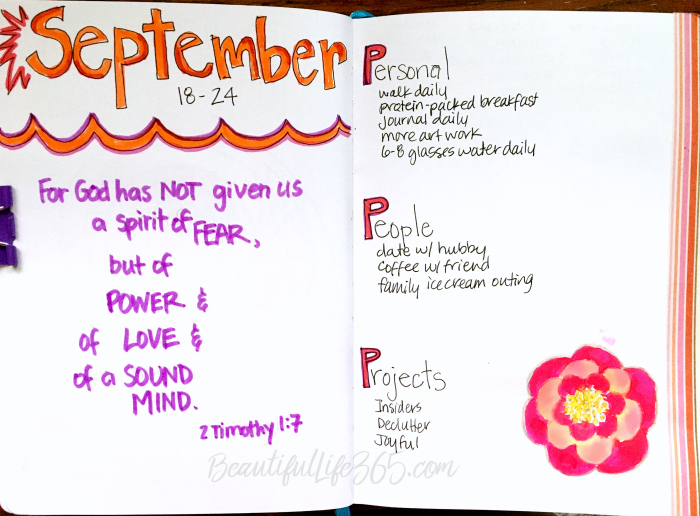 September
18-24
For God has NOT given us
a spirit of FEAR,
but of
POWER &
of LOVE &
of a SOUND
MIND.
2 Timothy 1:7
Personal
walk daily
protein-packed breakfast
journal daily
more art work
6-8 glasses water daily
People
date w/ hubby
coffee w/ friend
family ice cream outing
Projects
Insiders
Declutter
Joyful
BeautifulLife365.com